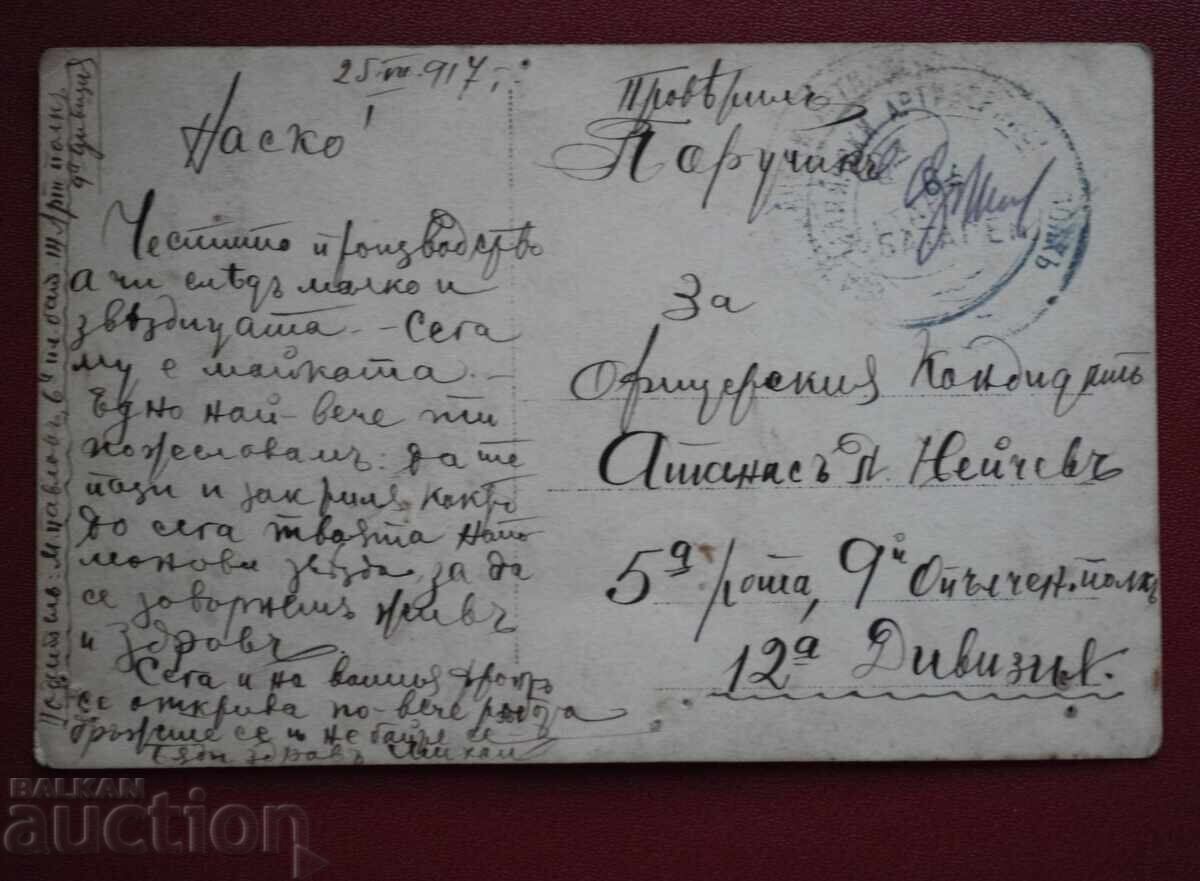 25 VIII 917
Наско!
Честито производство
а чи слѣдъ малко и
звѣздицата - Сега
му е майката.
Едно най-вече ти
пожелавамъ: да те
пази и закриля както
до сега твоята
звѣзда за да
се завърнешъ живъ
и здравъ.
Сега и на вашия фронтъ
се открива по-вече работа
дръжте се и не бойте се
Бъди здравъ
М. Павловъ
дивизия
Провѣрилъ
Поручикъ
БАТАРЕЯ
За
Офицерския Кандидатъ
Атанасъ П. Нейчевъ
5а рота, 9й Опълчен. полкъ
12а Дивизия.
BALKAN
auction